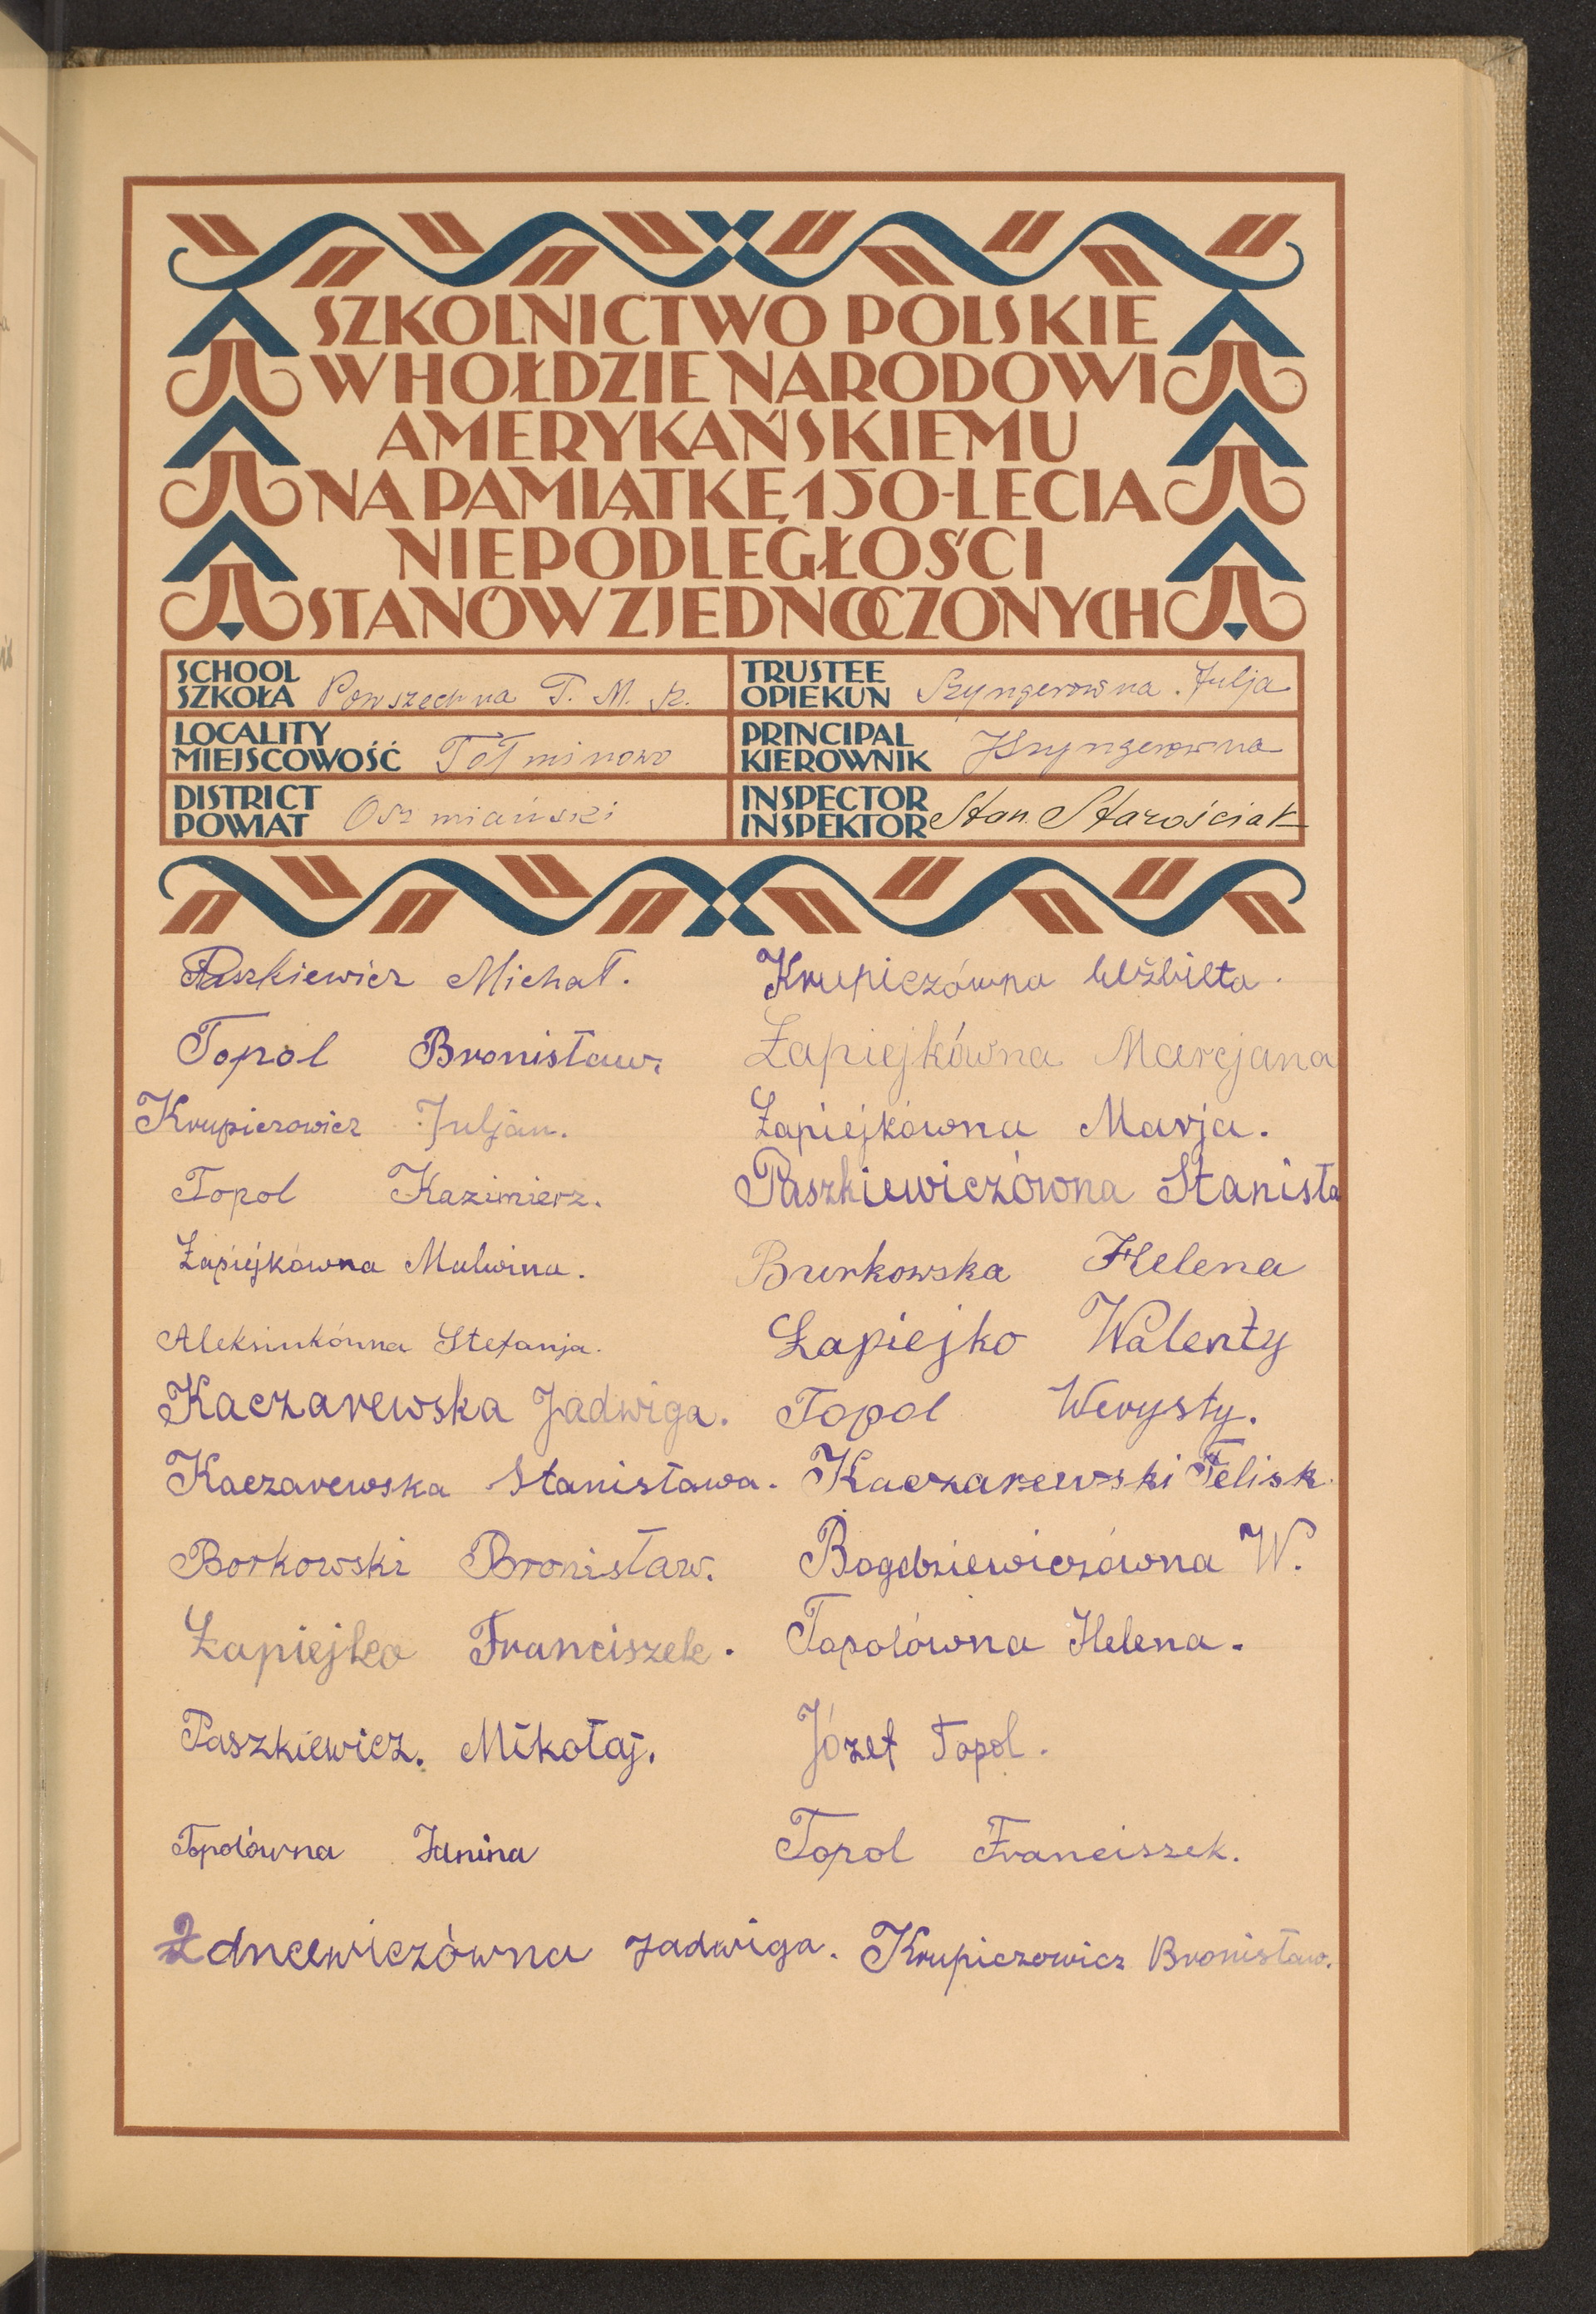 SZKOLNICTWO POLSKIE
W HOŁDZIE NARODOWI
AMERYKAŃSKIEMU
NA PAMIĄTKĘ 150-LECIA
NIEPODLEGŁOŚCI
STANÓW ZJEDNOCZONYCH
SCHOOL
SZKOŁA Powszechna T. M. K.
TRUSTEE
OPIEKUN Szyngerowna Julja
LOCALITY
MIEJSCOWOŚĆ Tołminowo
PRINCIPAL
KIEROWNIK JSzyngerowna
DISTRICT
POWIAT Oszmiański
INSPECTOR
INSPEKTOR Stan. Starościak
Paszkiewicz Michał. Krupiczówna Elżbieta.
Topol Bronisław. Łapiejkówna Marcjana
Krupiczowicz Juljan. Łapiejkówna Marja.
Topol Kazimierz. Paszkiewiczówna Stanisła
Łapiejkówna Malwina. Burkowska Helena
Aleksinkówna Stefanja. Łapiejko Walenty
Kaczarewska Jadwiga. Topol Werysty.
Kaczarewska Stanisława. Kaczarewski Felisk.
Borkowski Bronisław. Bogdziewiczówna W.
Łapiejko Franciszek. Topolówna Helena.
Paszkiewicz. Mikołaj. Józef Topol.
Topolówna Janina Topol Franciszek.
Jadwiga. Krupiczowicz Bronisław.